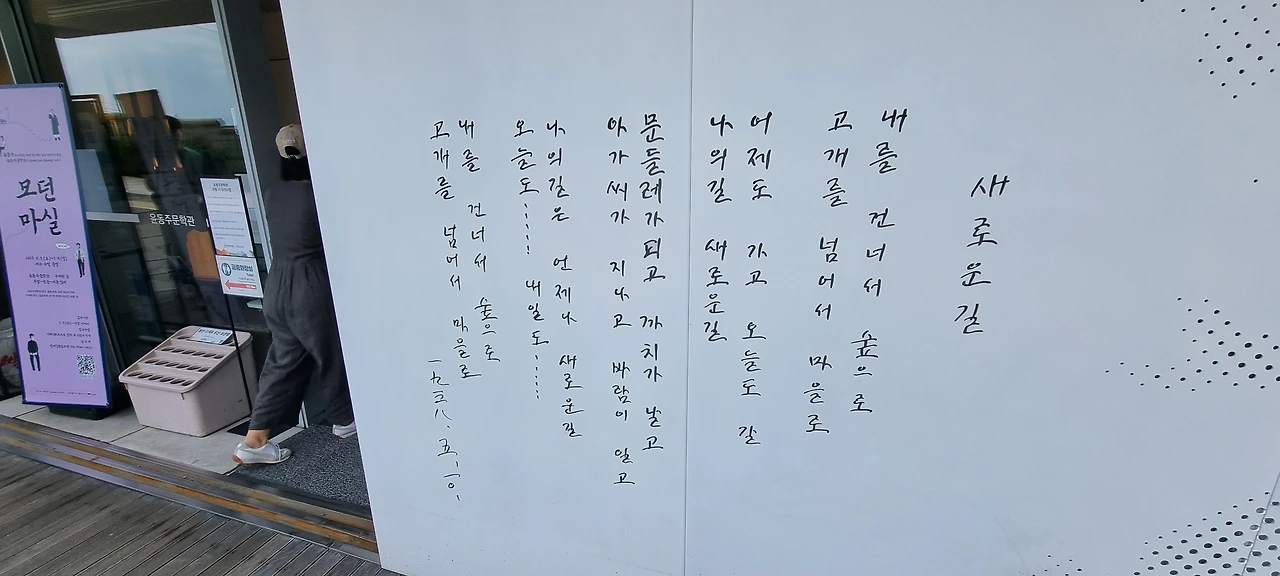 새로운길
내를 건너서 숲으로
고개를 넘어서 마을로
어제도 가고 오늘도 갈
나의길 새로운길
문들레가피고 까치가 날고
아가씨가 지나고 바람이 일고
나의길은 언제나 새로운길
오늘도‥‥‥ 내일도‥‥‥
내를 건너서 숲으로
고개를 넘어서 마을로
一九三八.五.一〇.
모던
마실
윤동주문학관